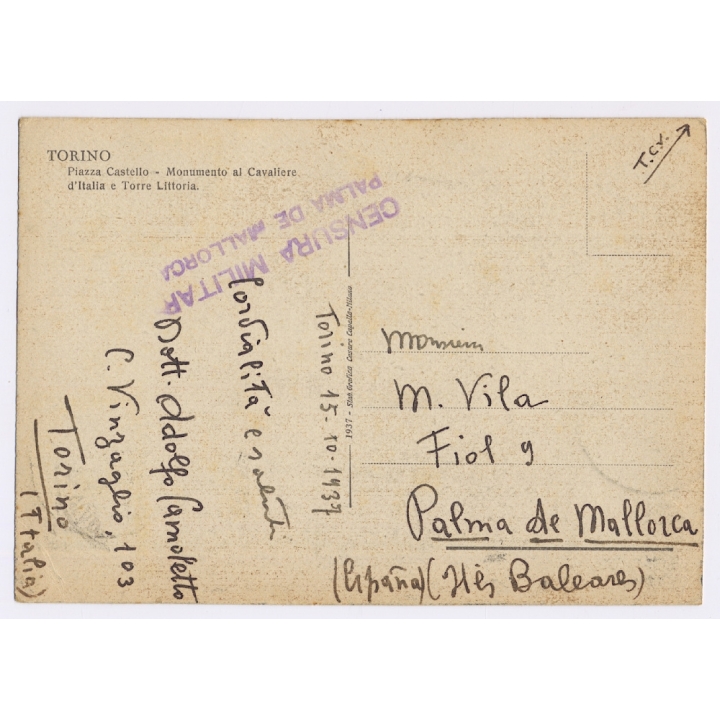 TORINO
Piazza Castello - Monumento al Cavaliere
d'Italia e Torre Littoria.
T.C.V.
CENSURA MILITAR
PALMA DE MALLORCA
Torino 15-10-1937
Cordialità e saluti
Dott. Adolfo Camoletto
C. Vinzaglio, 103
Torino
(Italia)
1937 - Stab. Grafico Cesare Capello-Milano
Monsieur
M. Vila
Fiol 9
Palma de Mallorca
(España) (Illes Baleares)